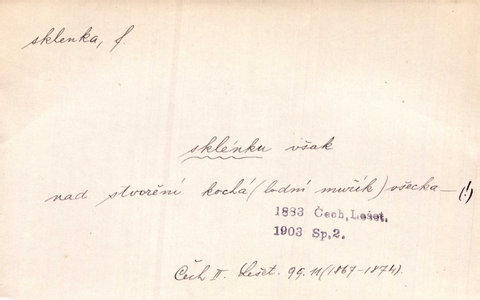 sklenka, f.
sklénku však
nad stvoření kochá (lodní mužík) všecka — (!)
1883 Čech, Lešet.
1903 Sp, 2.
Čech II. Lešet. 99. 11 (1867-1874).